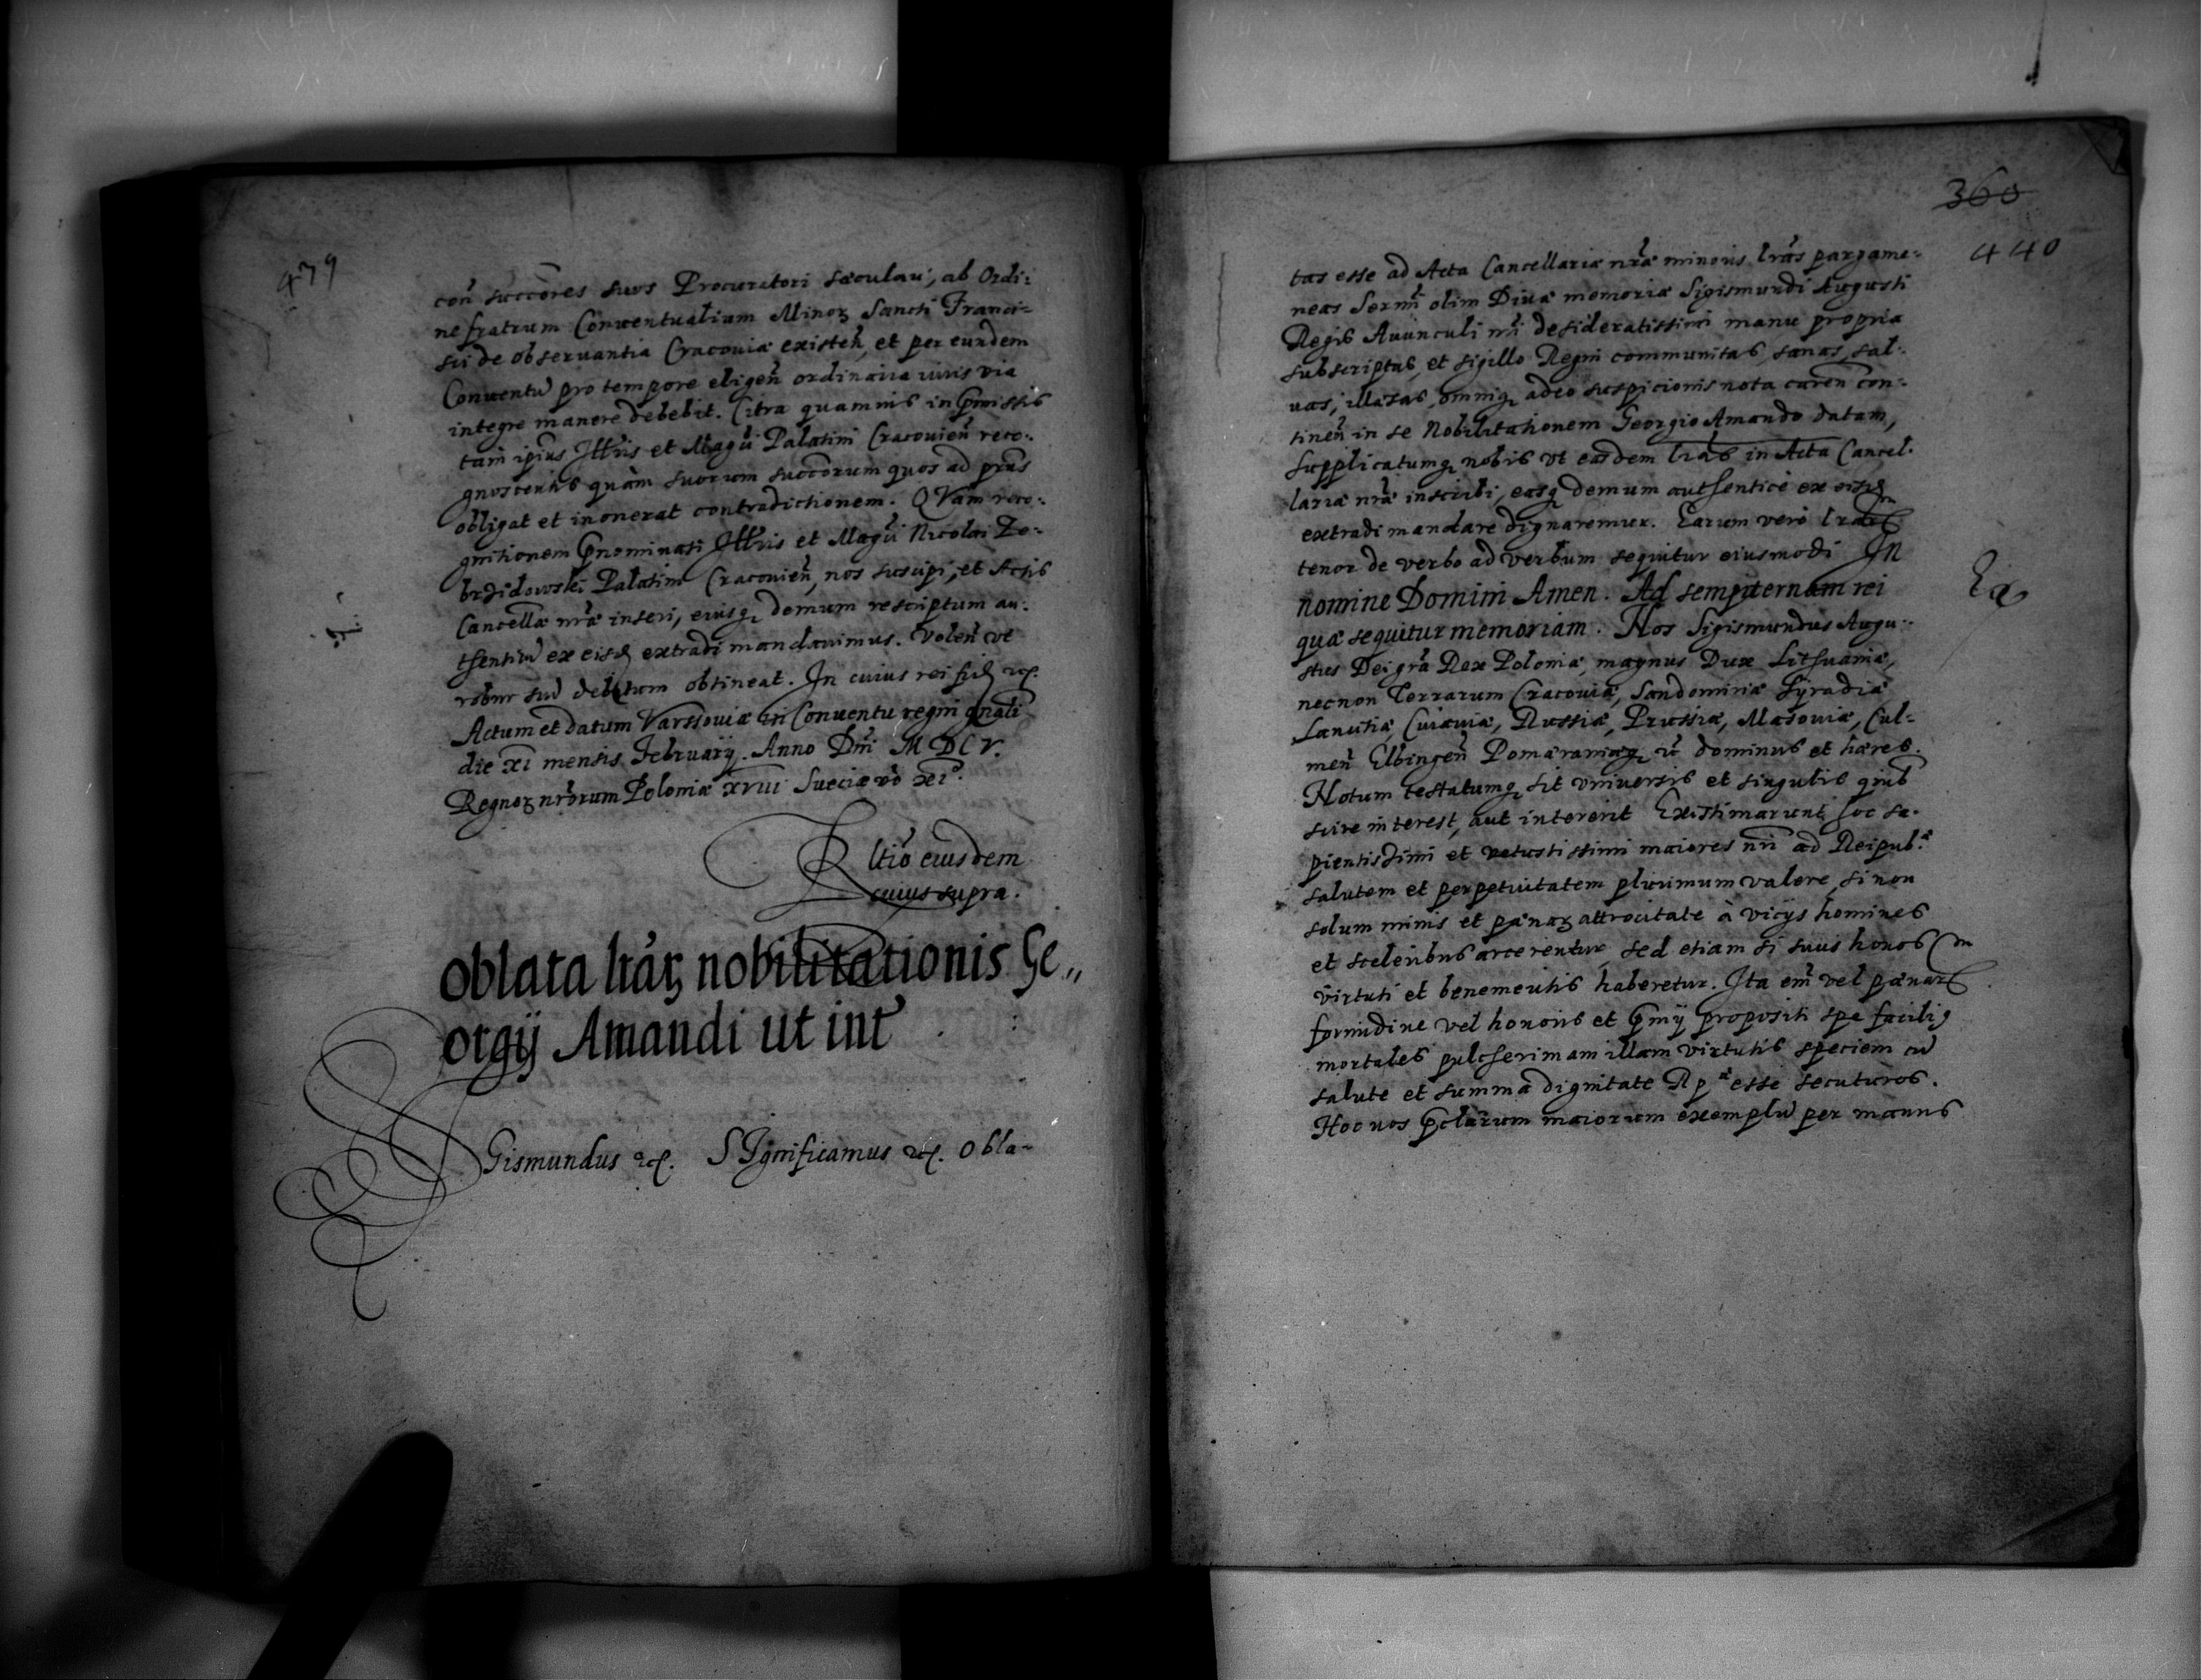 439
coñ succōres suos Procuratori sæculari, ab Ordi:
ne fratrum Conventualium Minoꝝ Sancti Franci=
sci de observantia Cracoviæ existeñ, et per eundem
Conventũ pro tempore eligeñ ordinaria iuris via
integre manere debebit. Citra quamvis in p̃missis
tam ip̃ius Ill̃ris et Magñ Palatini Cracovieñ reco:
gnoscentis quàm suorum succōrum quos ad p̃ns
obligat et inonerat contradictionem. QVam reco:
gnitionem p̃nominati Ill̃ris et Magñ Nicolai Ze:
brzidowski Palatini Cracovieñ, nos suscipi, et Actis
Cancellæ nr̃æ inseri, eiusqꝫ demum rescriptum au:
thenticũ ex eisđ extradi mandavimus. Voleñ ut
robur suũ debitum obtineat. In cuius rei fiđ etc.
Actum et datum Varssoviæ in Conventu regni gñali
die XI mensis Februarij. Anno Dñi M DC V.
Regnoꝝ nr̃orum Poloniæ XVIII Sueciæ vō XI°.
Rltiō eiusdem
cuius supra.
Oblata lrãꝝ nobilitationis Ge„
orgij Amandi ut int̃
SGismundus etc. SIgnificamus etc. Obla-
360
440
tas esse ad Acta Cancellariæ nr̃æ minoris lrãs pargame:
neas Sermĩ olim Divæ memoriæ Sigismundi Augusti
Regis Avunculi nr̃i desideratissimi manu propria
subscriptas, et sigillo Regni communitas, sanas, sal:
vas, illæsas, omniqꝫ adeo suspicionis nota careñ con:
tineñ in se Nobilitationem Georgio Amando datam,
Supplicatumqꝫ nobis ut easdem lrãs in Acta Cancel.
lariæ nr̃æ inscribi, easqꝫ demum authentice ex eisđ
extradi mandare dignaremur. Earum verò lrãꝝ
tenor de verbo ad verbum sequitur eiusmodi In
nomine Domini Amen. Ad sempiternam rei
quæ sequitur memoriam. Nos Sigismundus Augu:
stus Dei grã Rex Poloniæ, magnus Dux Lithuaniæ,
necnon Terrarum Cracoviæ, Sandomiriæ Syradiæ
Lanutiæ, Cuiaviæ, Russiæ, Prussiæ, Masoviæ, Cul=
meñ Elbingeñ Pomæraniæqꝫ etc̃ dominus et hæres.
Notum testatumqꝫ sit universis et singulis quib
scire interest, aut intererit Existimarunt hoc sa.
pientissimi et vetustissimi maiores nr̃i ad Reipub.æ
salutem et perpetuitatem plurimum valere, si non
solum minis et pænaꝝ attrocitate à vicijs homines
et sceleribus arcerentur, sed etiam si suus honos
virtuti et benemeritis haberetur. Ita em̃ vel pænaꝝ
formidine vel honoris et p̃mij propositi spe facilius
mortales pulcherimam illam virtutis speciem cũ
salute et summa dignitate Rpæ esse secuturos.
Hoc nos p̃clarum maiorum exemplũ per manus